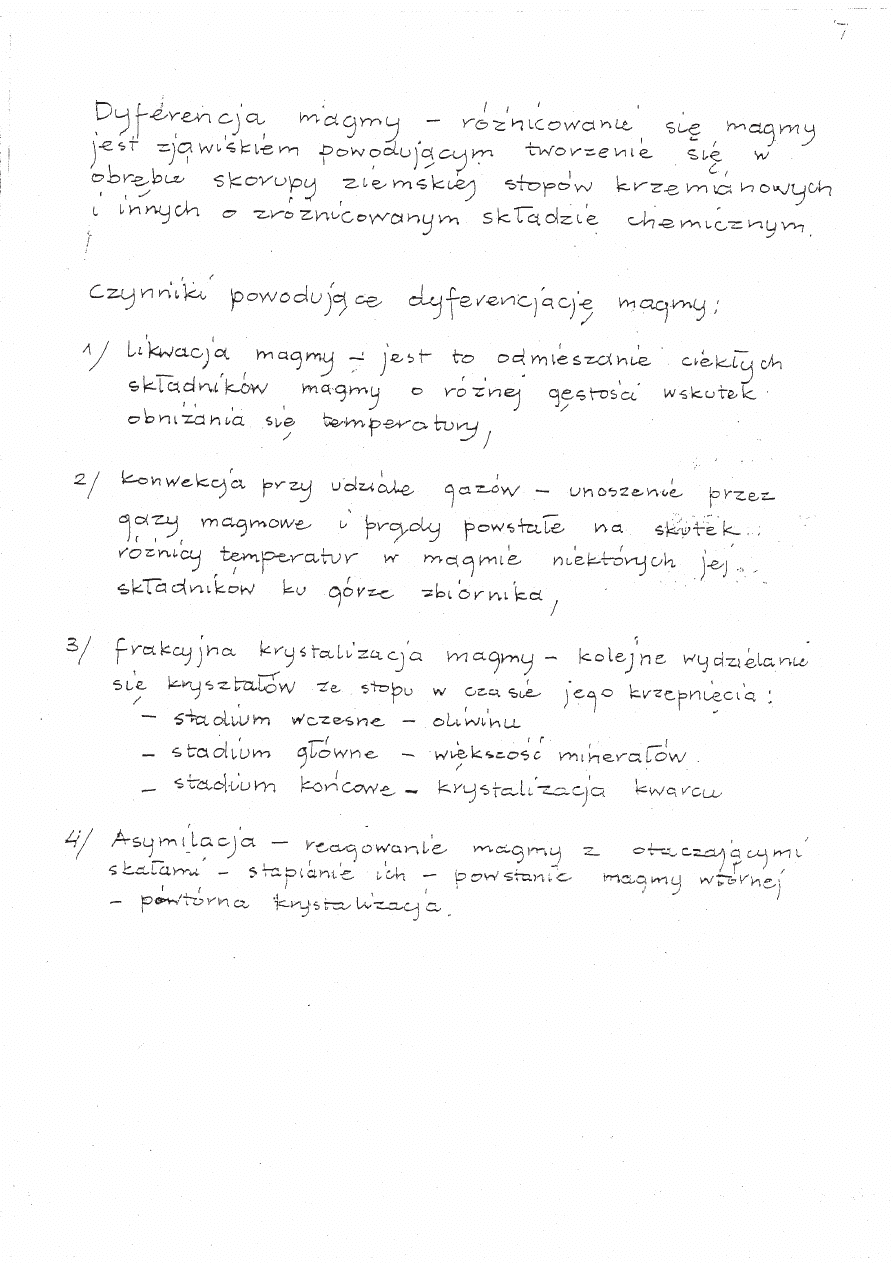 7
Dyferencja magmy – różnicowanie się magmy
jest zjawiskiem powodującym tworzenie się w
obrębie skorupy ziemskiej stopów krzemianowych
i innych o zróżnicowanym składzie chemicznym.
Czynniki powodujące dyferencjację magmy:
1/ likwacja magmy – jest to odmieszanie ciekłych
składników magmy o różnej gęstości wskutek
obniżania się temperatury,
2/ konwekcja przy udziale gazów – unoszenie przez
gazy magmowe i prądy powstałe na skutek
różnicy temperatur w magmie niektórych jej
składników ku górze zbiornika,
3/ frakcyjna krystalizacja magmy – kolejne wydzielanie
się kryształów ze stopu w czasie jego krzepnięcia:
– stadium wczesne – oliwinu
– stadium główne – większość minerałów
– stadium końcowe – krystalizacja kwarcu
4/ Asymilacja – reagowanie magmy z otaczającymi
skałami – stapianie ich – powstanie magmy wtórnej
– powtórna krystalizacja.